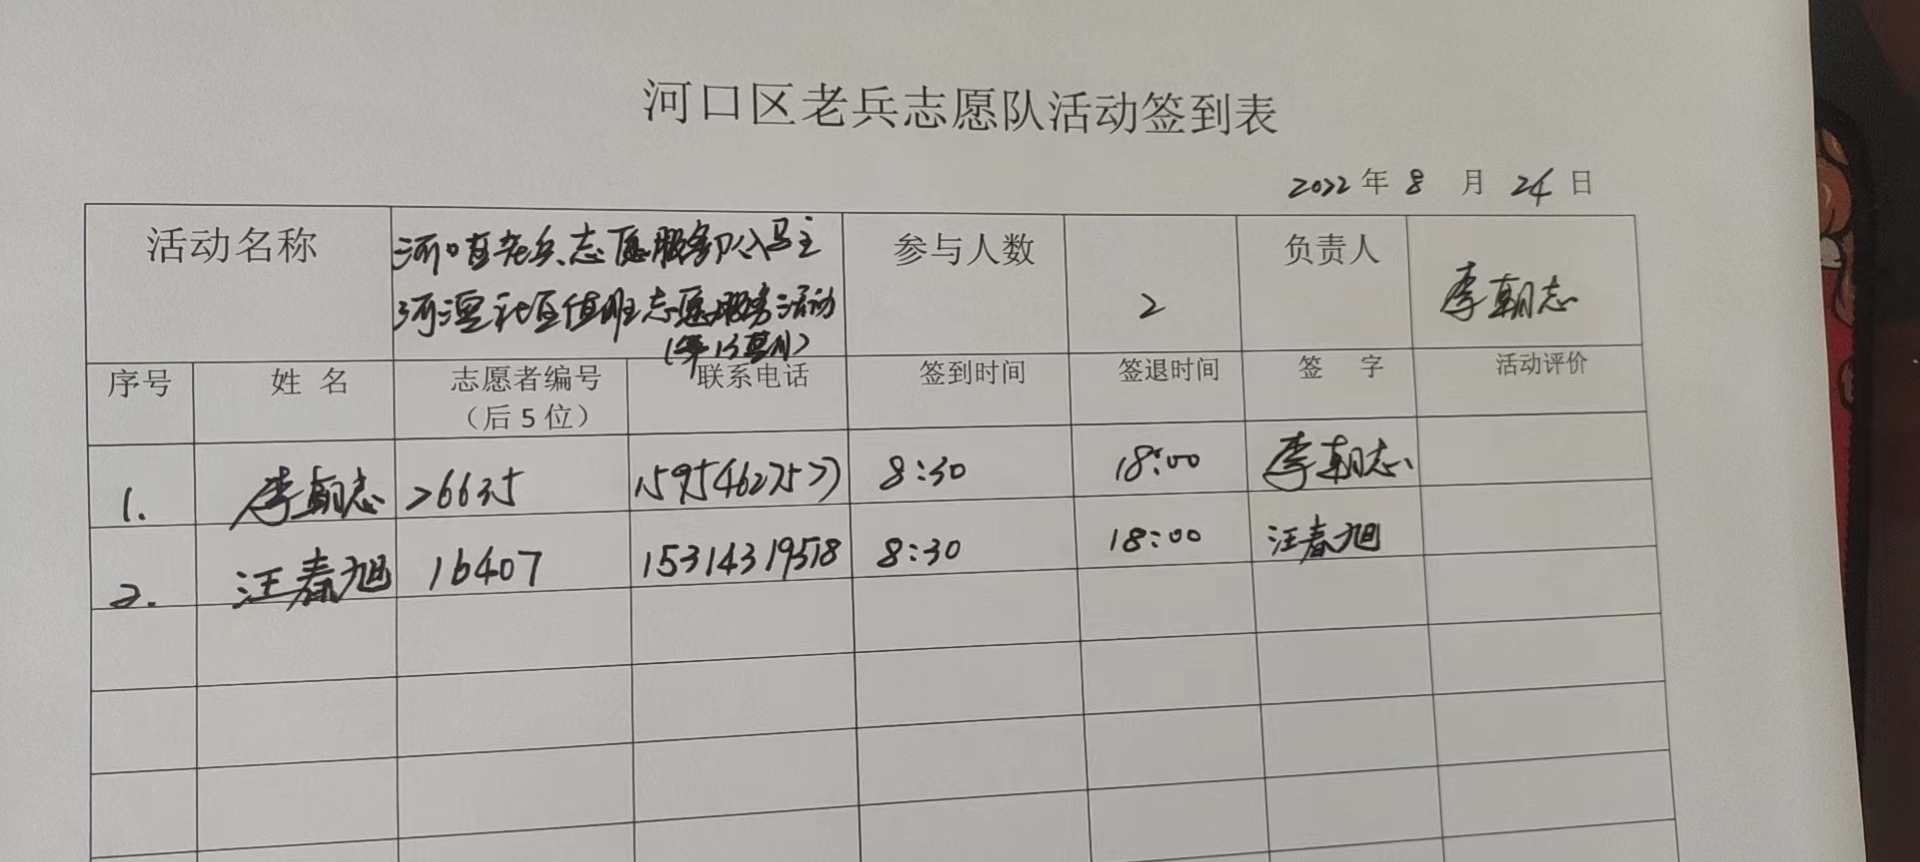 河口区老兵志愿队活动签到表
2022年 8 月 24 日
活动名称 河口区老兵志愿服务队 参与人数 2 负责人 李朝志
河 社区值班志愿服务活动
序号 姓名 志愿者编号 联系电话 签到时间 签退时间 签 字 活动评价
（后5位）
1. 李朝志 26635 8:30 18:00 李朝志
2. 汪春旭 16407 15314319518 8:30 18:00 汪春旭